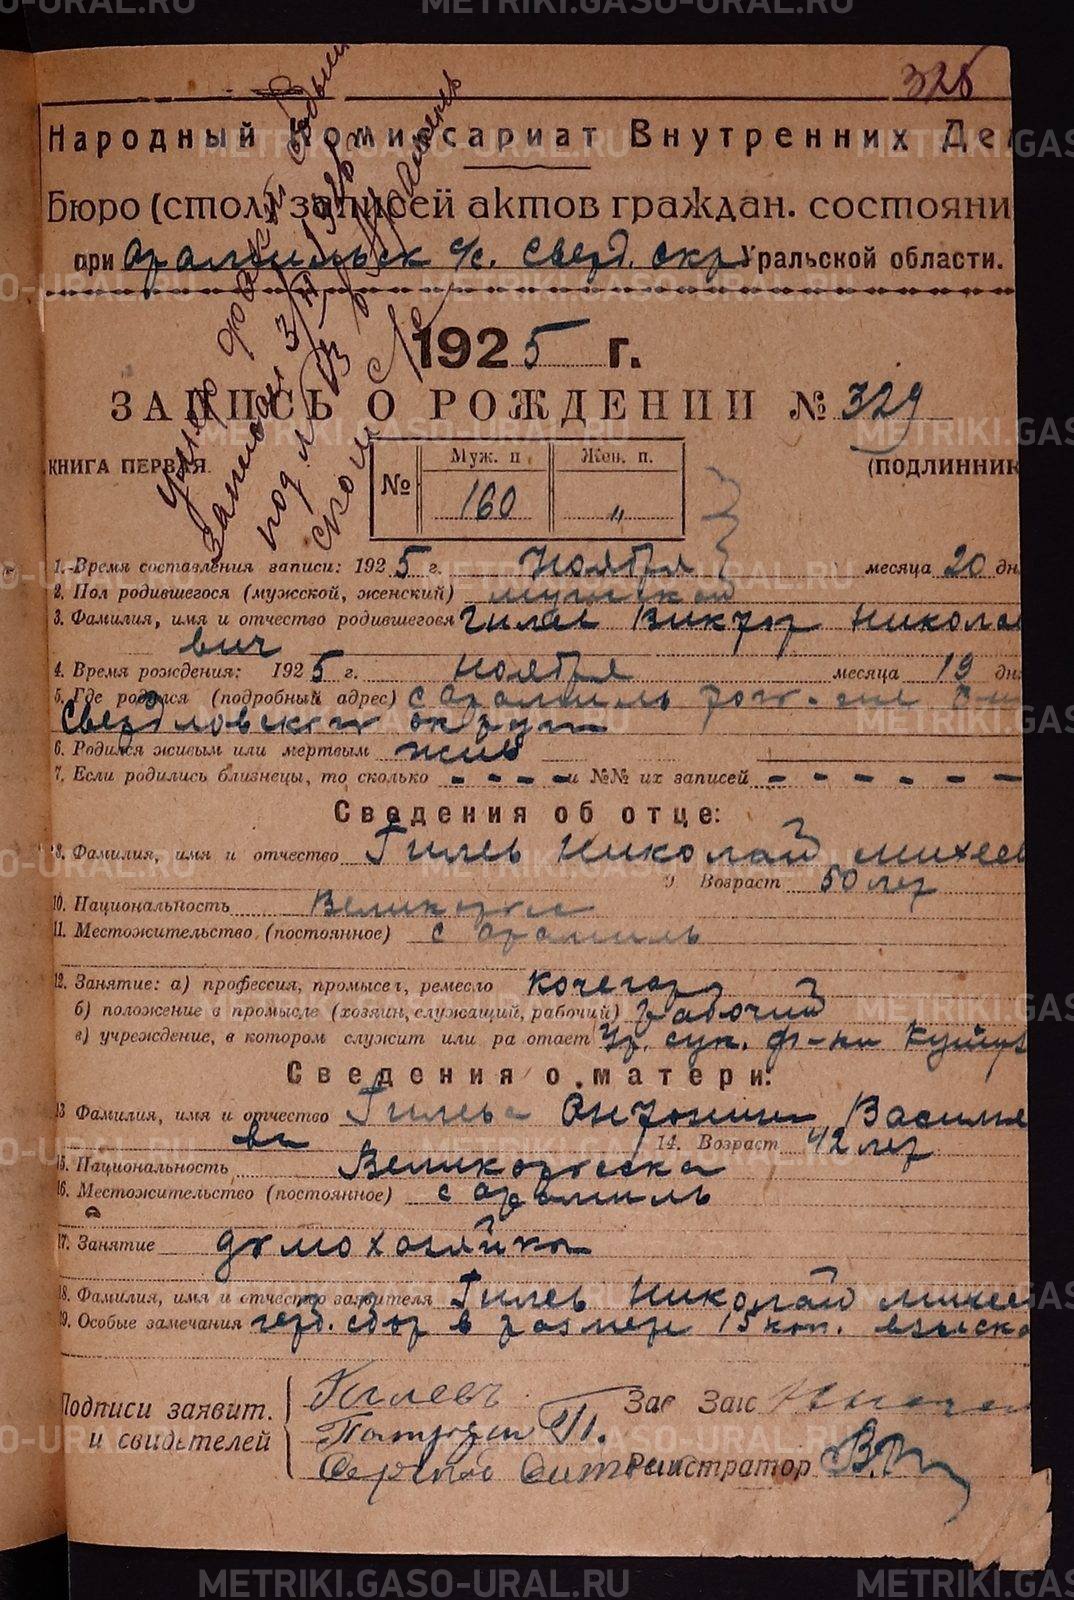 328
Народный Комиссариат Внутренних Де
Бюро (стол) записей актов граждан. состояни
при Арамильск с/с. Сверд. окр. Уральской области.
1925 г.
ЗАПИСЬ О РОЖДЕНИИ № 329
КНИГА ПЕРВАЯ. (ПОДЛИННИК
№ Муж. п Жен. п.
160 "
1.-Время составления записи: 1925 г. Ноября месяца 20 дн
2. Пол родившегося (мужской, женский) мужской
3. Фамилия, имя и отчество родившегося Гилев Виктор Николае
вич
4. Время рождения: 1925 г. Ноября месяца 19 дн
5. Где родился (подробный адрес) с Арамиль
Свердловского округа
6. Родился живым или мертвым жив
7. Если родились близнецы, то сколько - - - - и №№ их записей - - - - - -
Сведения об отце:
8. Фамилия, имя и отчество Гилев Николай Михеев
9 Возраст 50 лет
10. Национальность Великоросс
11. Местожительство (постоянное) с Арамиль
12. Занятие: а) профессия, промысел, ремесло Кочегар
б) положение в промысле (хозяин, служащий, рабочий) рабочий
в) учреждение, в котором служит или ра отает сук. ф-ки
Сведения о матери:
13 Фамилия, имя и отчество Гилева Антонина Василье
вна 14. Возраст 42 лет
15. Национальность Великоросска
16. Местожительство (постоянное) с Арамиль
17. Занятие домохозяйка
18. Фамилия, имя и отчество заявителя Гилев Николай Михеев
19. Особые замечания герб. сбор в размере 15 коп. взыска
Подписи заявит. и свидетелей
Гилевъ
Зав Загс
Регистратор
METRIKI.GASO-URAL.RU